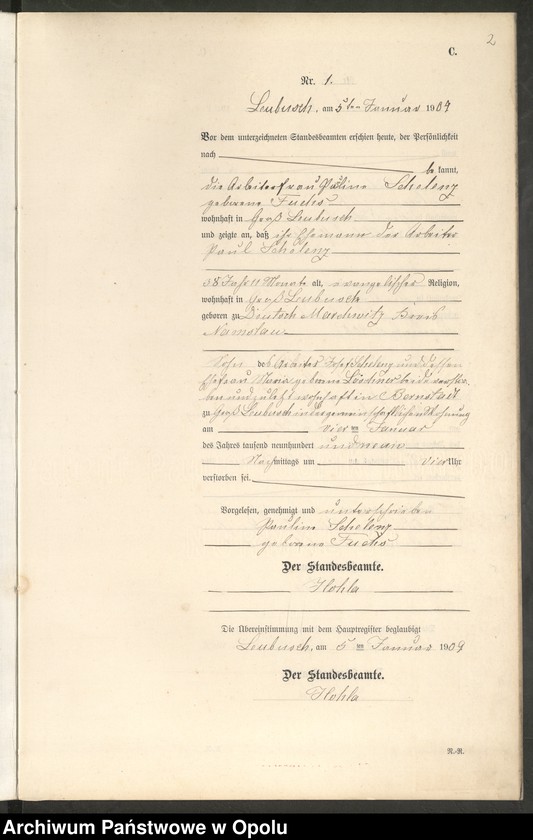 2
C.
Nr. 1.
Leubusch, am 5ten Januar 1909
Vor dem unterzeichneten Standesbeamten erschien heute, der Persönlichkeit
nach be kannt,
die Arbeiterfrau Pauline Schelenz
geborene Fuchs
wohnhaft in Groß Leubusch
und zeigte an, daß ihr Ehemann der Arbeiter
Paul Schelenz
58 Jahr 11 Monate alt, evangelischer Religion,
wohnhaft in Groß Leubusch
geboren zu Deutsch Marchwitz Kreis
Namslau
Sohn des Arbeiters Josef Schelenz und dessen
Ehefrau Maria geborene beide
und zuletzt wohnhaft in Bernstadt
zu Groß Leubusch in der gemeinschaftlichen Wohnung
am vier ten Januar
des Jahres tausend neunhundert und neun
Nachmittags um vier Uhr
verstorben sei.
Vorgelesen, genehmigt und unterschrieben
Pauline Schelenz
geborene Fuchs
Der Standesbeamte.
Hohla
Die Übereinstimmung mit dem Hauptregister beglaubigt
Leubusch, am 5 ten Januar 1909
Der Standesbeamte.
Hohla
R.-R.
Archiwum Państwowe w Opolu